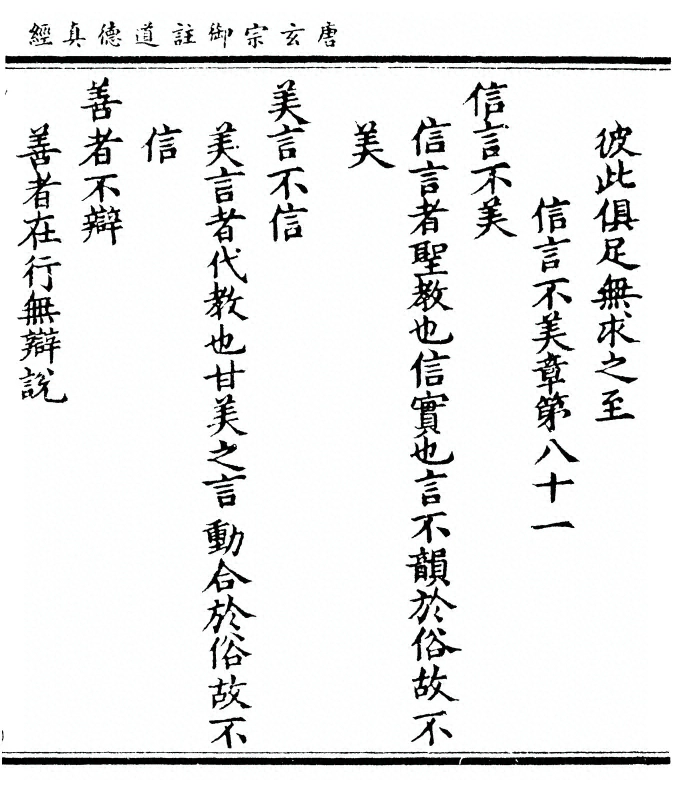 唐玄宗御註道德真經
彼此俱足無求之至
信言不美章第八十一
信言不美
信言者聖教也信實也言不韻於俗故不
美
美言不信
美言者代教也甘美之言動合於俗故不
信
善者不辯
善者在行無辯說